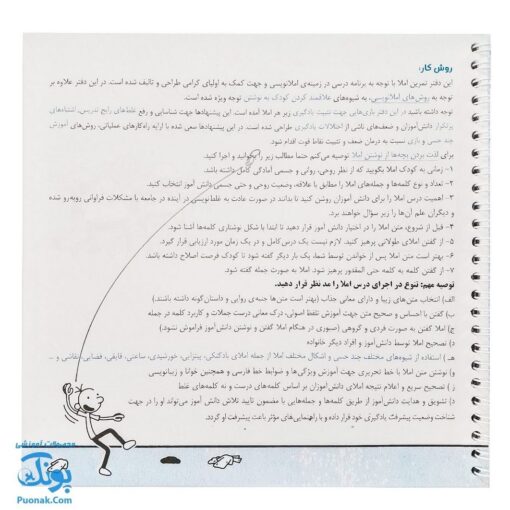 روش کار:
این دفتر تمرین املا با توجه به برنامه درسی در زمینه‌ی املانویسی و جهت کمک به اولیای گرامی طراحی و تالیف شده است. در این دفتر علاوه بر
توجه به روش‌های املانویسی، به شیوه‌های علاقمند کردن کودک به نوشتن توجه ویژه شده است.
توجه داشته باشید در این دفتر بازی‌هایی جهت تثبیت یادگیری زیر هر املا آمده است. این پیشنهادها جهت شناسایی و رفع غلط‌های رایج تدریس، اشتباه‌های
پرتکرار دانش‌آموزان و ضعف‌های ناشی از اختلالات یادگیری طراحی شده است. در این پیشنهادها سعی شده با ارایه راه‌کارهای عملیاتی، روش‌های آموزش
چند حسی و بازی نسبت به درمان ضعف و تثبیت نقاط قوت اقدام شود.
برای لذت بردن بچه‌ها از نوشتن املا توصیه می‌کنم حتما مطالب زیر را بخوانید و اجرا کنید.
۱- زمانی به کودک املا بگویید که از نظر روحی، روانی و جسمی آمادگی کامل داشته باشد.
۲- تعداد و نوع کلمه‌ها و جمله‌های املا را مطابق با علاقه، وضعیت روحی و حتی جسمی دانش‌آموز انتخاب کنید.
۳- اهمیت درس املا را برای دانش آموزان روشن کنید تا بدانند در صورت عادت به غلط‌نویسی در آینده در جامعه با مشکلات فراوانی روبه‌رو شده
و دیگران علم آن‌ها را زیر سؤال خواهند برد.
۴- قبل از شروع، متن املا را در اختیار دانش آموز قرار دهید تا ابتدا با شکل نوشتاری کلمه‌ها آشنا شود.
۵- از گفتن املای طولانی پرهیز کنید. لازم نیست یک درس کامل و در یک زمان مورد ارزیابی قرار گیرد.
۶- بهتر است متن املا پس از خواندن توسط شما، یک بار دیگر گفته شود تا کودک فرصت اصلاح داشته باشد.
۷- از گفتن کلمه به کلمه حتی المقدور پرهیز شود. املا به صورت جمله گفته شود.
توصیه مهم: تنوع در اجرای درس املا را مد نظر قرار دهید.
الف) انتخاب متن‌های زیبا و دارای معانی جذاب (بهتر است متن‌ها جنبه‌ی روایی و داستان‌گونه داشته باشند.)
ب) گفتن با احساس و صحیح متن جهت آموزش تلفظ اصولی، درک معانی درست جملات و کاربرد کلمه در جمله
ج) املا گفتن به صورت فردی و گروهی (صبوری در هنگام املا گفتن و نوشتن دانش‌آموز فراموش نشود.)
د) تصحیح املا توسط دانش‌آموز و افراد دیگر خانواده
هـ) استفاده از شیوه‌های مختلف چند حسی و اشکال مختلف املا از جمله املای بادکنکی، پیتزایی، خورشیدی، ساعتی، قایقی، فضایی، نقاشی و ...
و) نوشتن متن املا با خط تحریری جهت آموزش ویژگی‌ها و ضوابط خط فارسی و همچنین خوانا و زیبانویسی
ز) تصحیح سریع و اعلام نتیجه املای دانش‌آموزان بر اساس کلمه‌های درست و نه کلمه‌های غلط
ح) تشویق و هدایت دانش‌آموز از طریق کلمه‌ها و جمله‌هایی با مضمون تایید تلاش دانش آموز می‌تواند او را در جهت
شناخت وضعیت پیشرفت یادگیری خود قرار داده و با راهنمایی‌های مؤثر باعث پیشرفت او گردد.
محصولات آموزشی
پونک
Puonak.Com